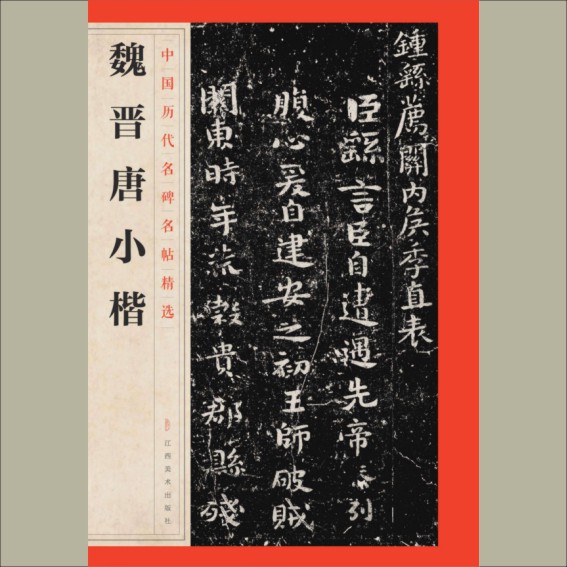 鍾繇薦關内侯季直表
臣繇言臣自遭遇先帝忝列
腹心爰自建安之初王師破賊
關東時年荒穀貴郡縣殘
中国历代名碑名帖精选
魏晋唐小楷
江西美术出版社